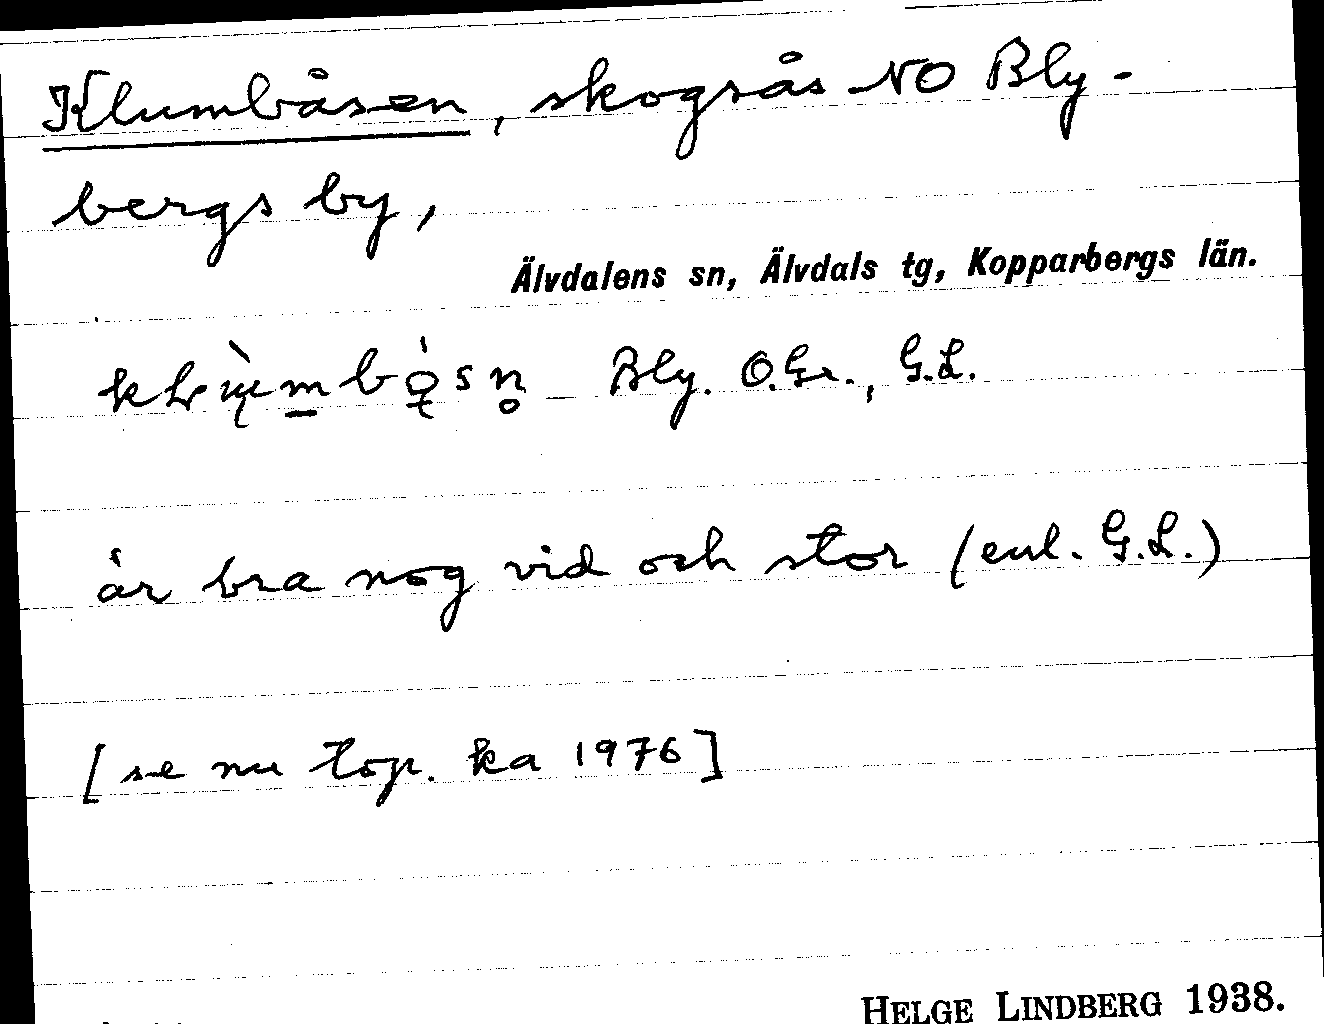 Klumbåsen, skogsås NO Bly-
bergs by,
Älvdalens sn, Älvdals tg, Kopparbergs län.
Bly. O.Gr., G.L.
är bra nog vid och stor (enl. G.L.)
[se nu top. ka 1976]
HELGE LINDBERG 1938.